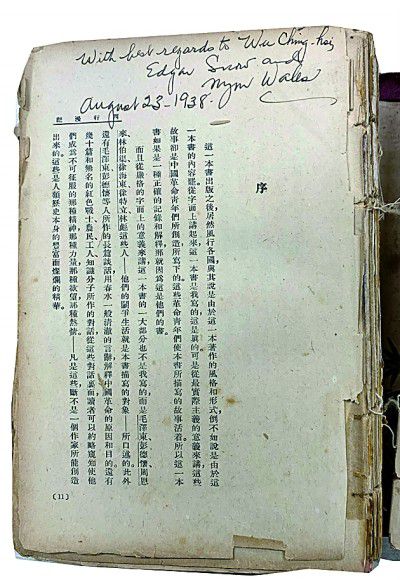 With best regards to Wu Ching-hsi
Edgar Snow and
Nym Wales
August 23-1938.
西行漫記
序
這一本書出版之後，居然風行各國，與其說是由於這一本著作的風格和形式，倒不如說是由於這
一本書的內容罷。從字面上講起來，這一本書是我寫的，這是真的。可是從最實際主義的意義來講，這些
故事卻是中國革命青年們所創造，所寫下的。這些革命青年們使本書所描寫的故事活着。所以這一本
書如果是一種正確的記錄和解釋，那就因爲這是他們的書。
而且從嚴格的字面上的意義來講，這一本書的一大部分也不是我寫的，而是毛澤東、彭德懷、周恩
來、林伯渠、徐海東、徐特立、林彪這些人——他們的鬥爭生活就是本書描寫的對象——所口述的。此外
還有毛澤東、彭德懷等人所作的長篇談話，用春水一般清澈的言辭，解釋中國革命的原因和目的。還有
幾十篇和無名的紅色戰士、農民、工人、知識分子所作的對話，從這些對話裏面，讀者可以約略窺知使他
們成爲不可征服的那種精神，那種力量，那種欲望，那種熱情。——凡是這些，斷不是一個作家所能創造
出來的。這些是人類歷史本身的豐富而燦爛的精華。
(11)